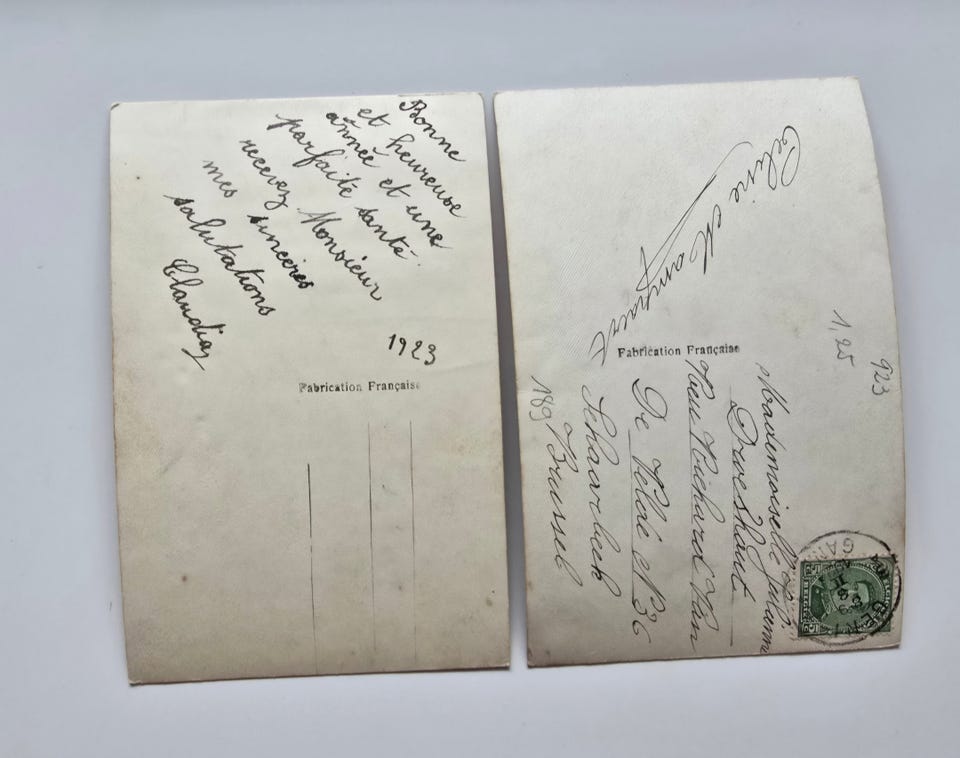 Bonne
et heureuse
année et une
parfaite santé.
recevez Monsieur
mes sincères
salutations
Claudia
1923
Fabrication Française
Celine
Fabrication Française
1,25
923
Mademoiselle
Rue Richard Van
De Velde N 36
Schaarbeek
Brussel
189
GENT